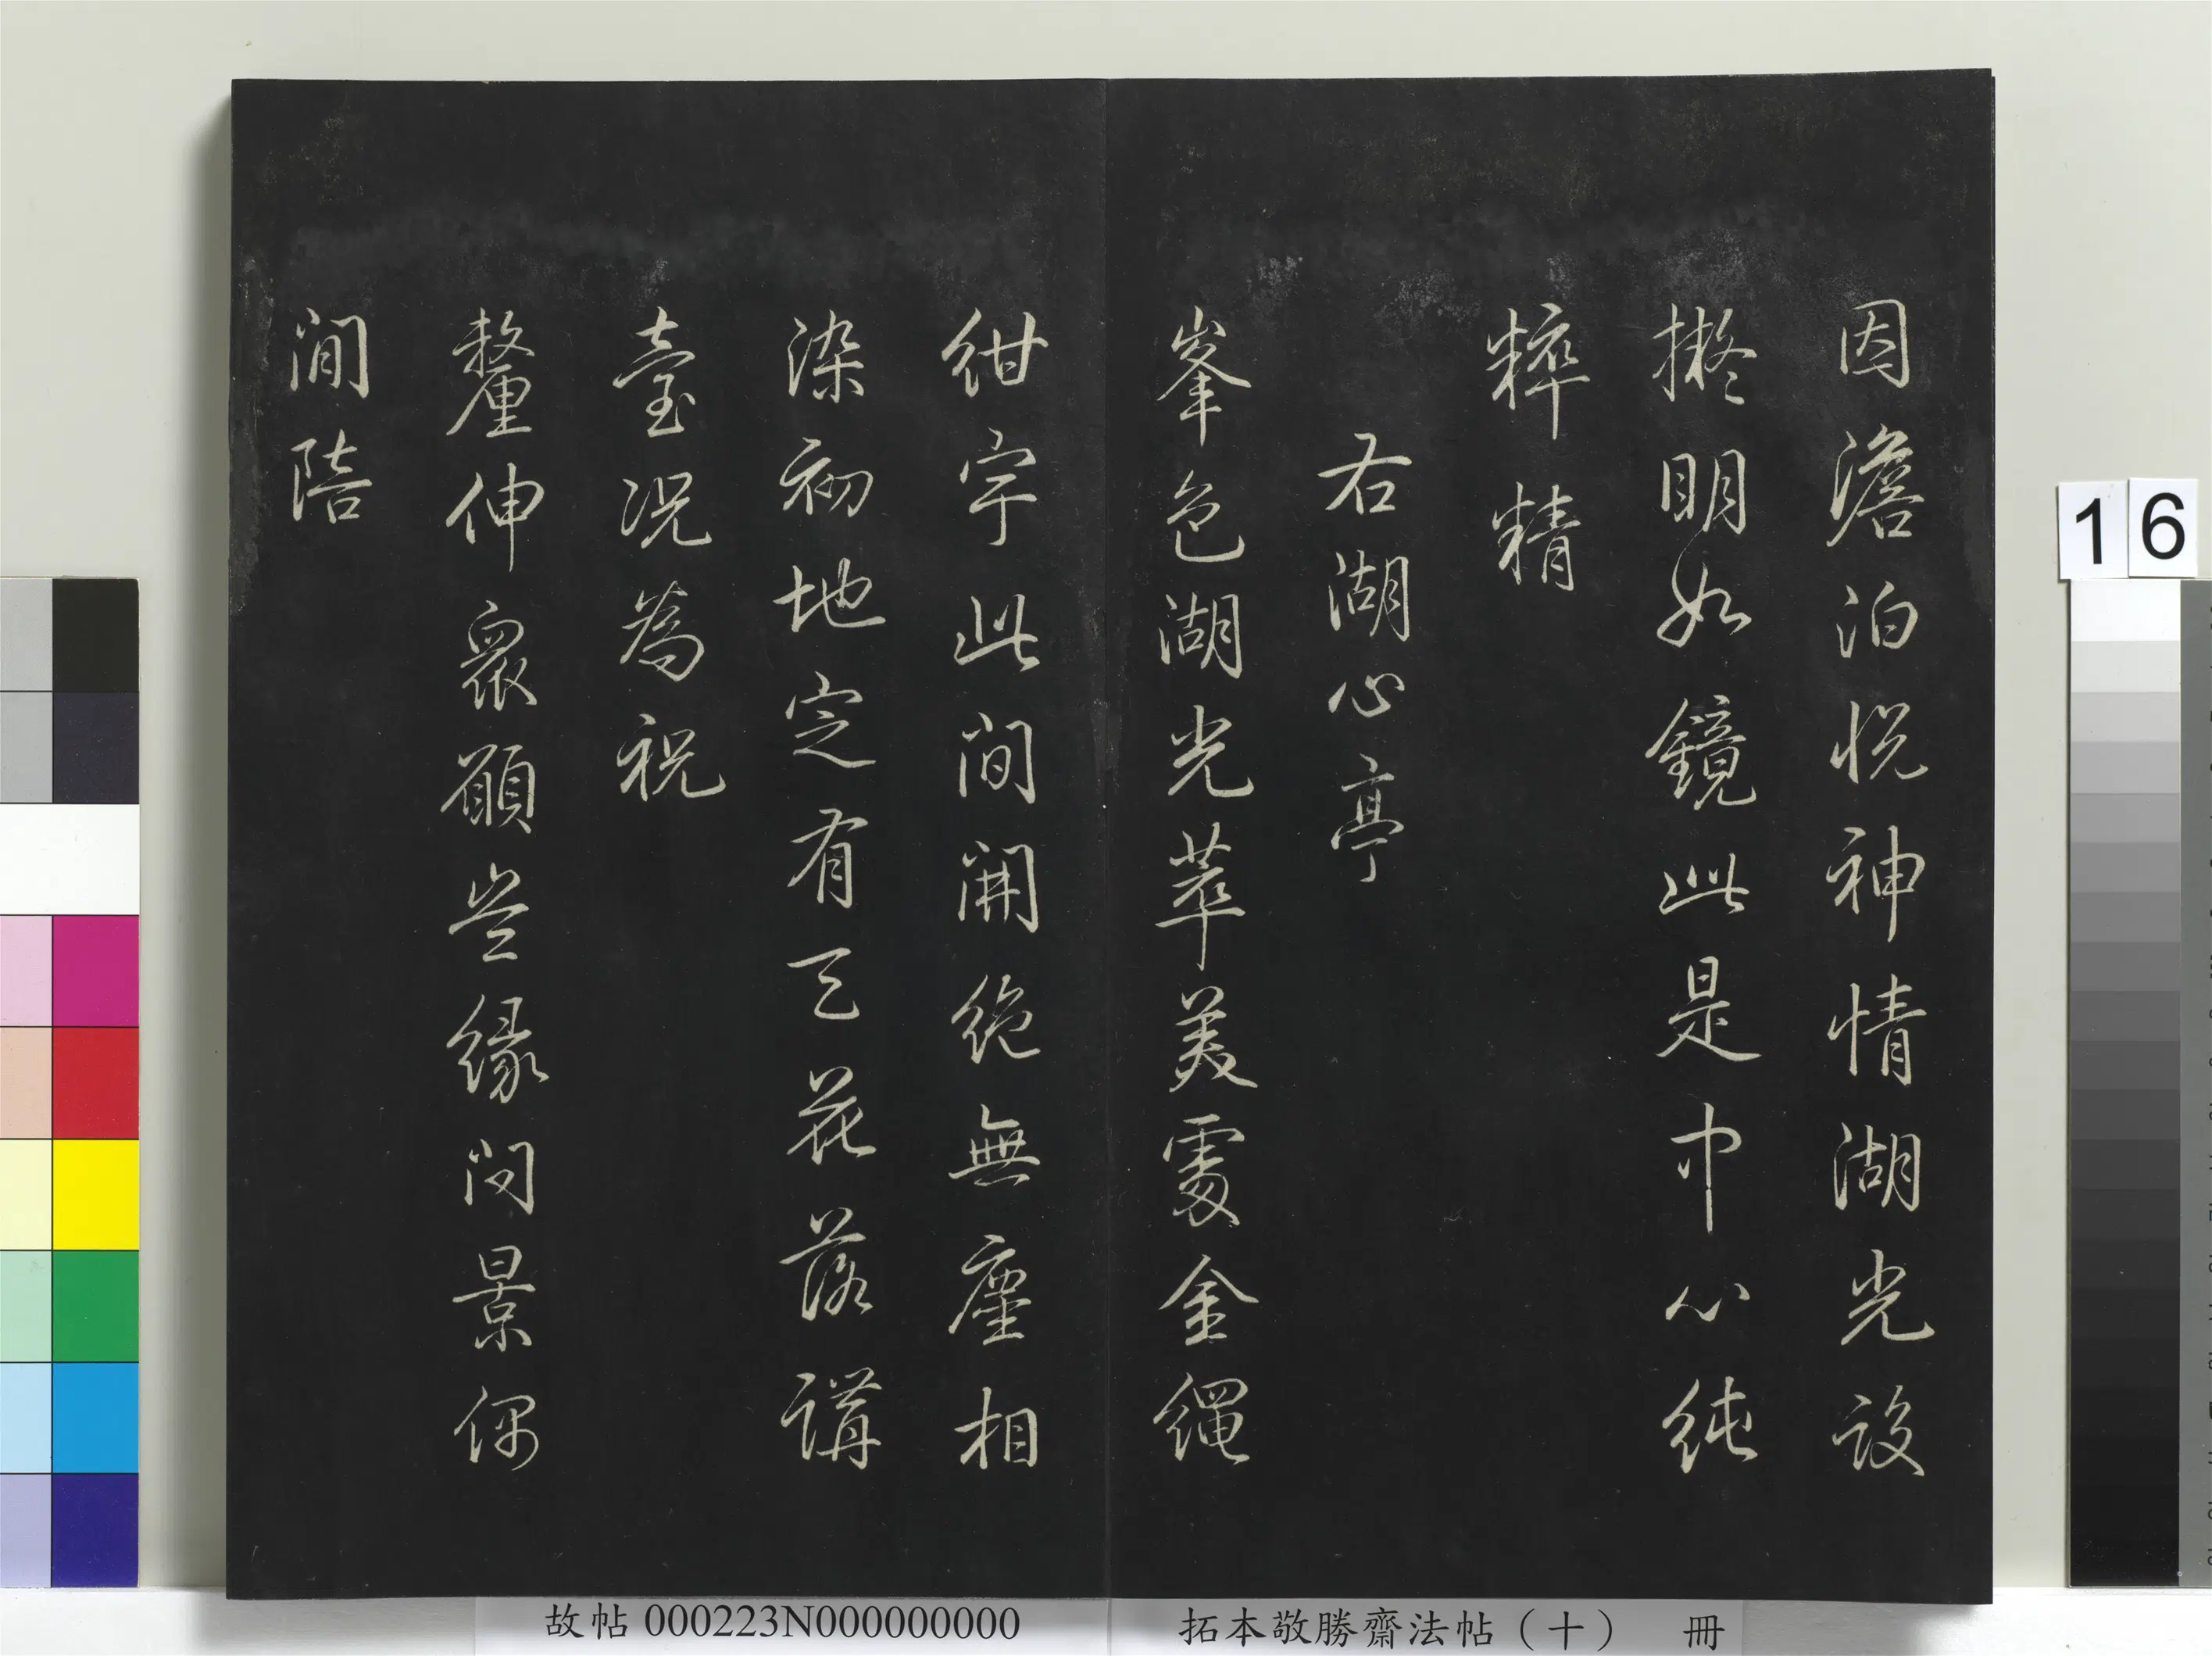 因澹泊悅神情湖光設
擬明如鏡此是中心純
粹精
右湖心亭
峯色湖光萃美處金繩
紺宇此間開絶無塵相
染初地定有天花落講
臺況為祝
釐伸衆願豈緣問景偶
閒陪
16
故帖 000223N000000000
拓本敬勝齋法帖（十） 冊